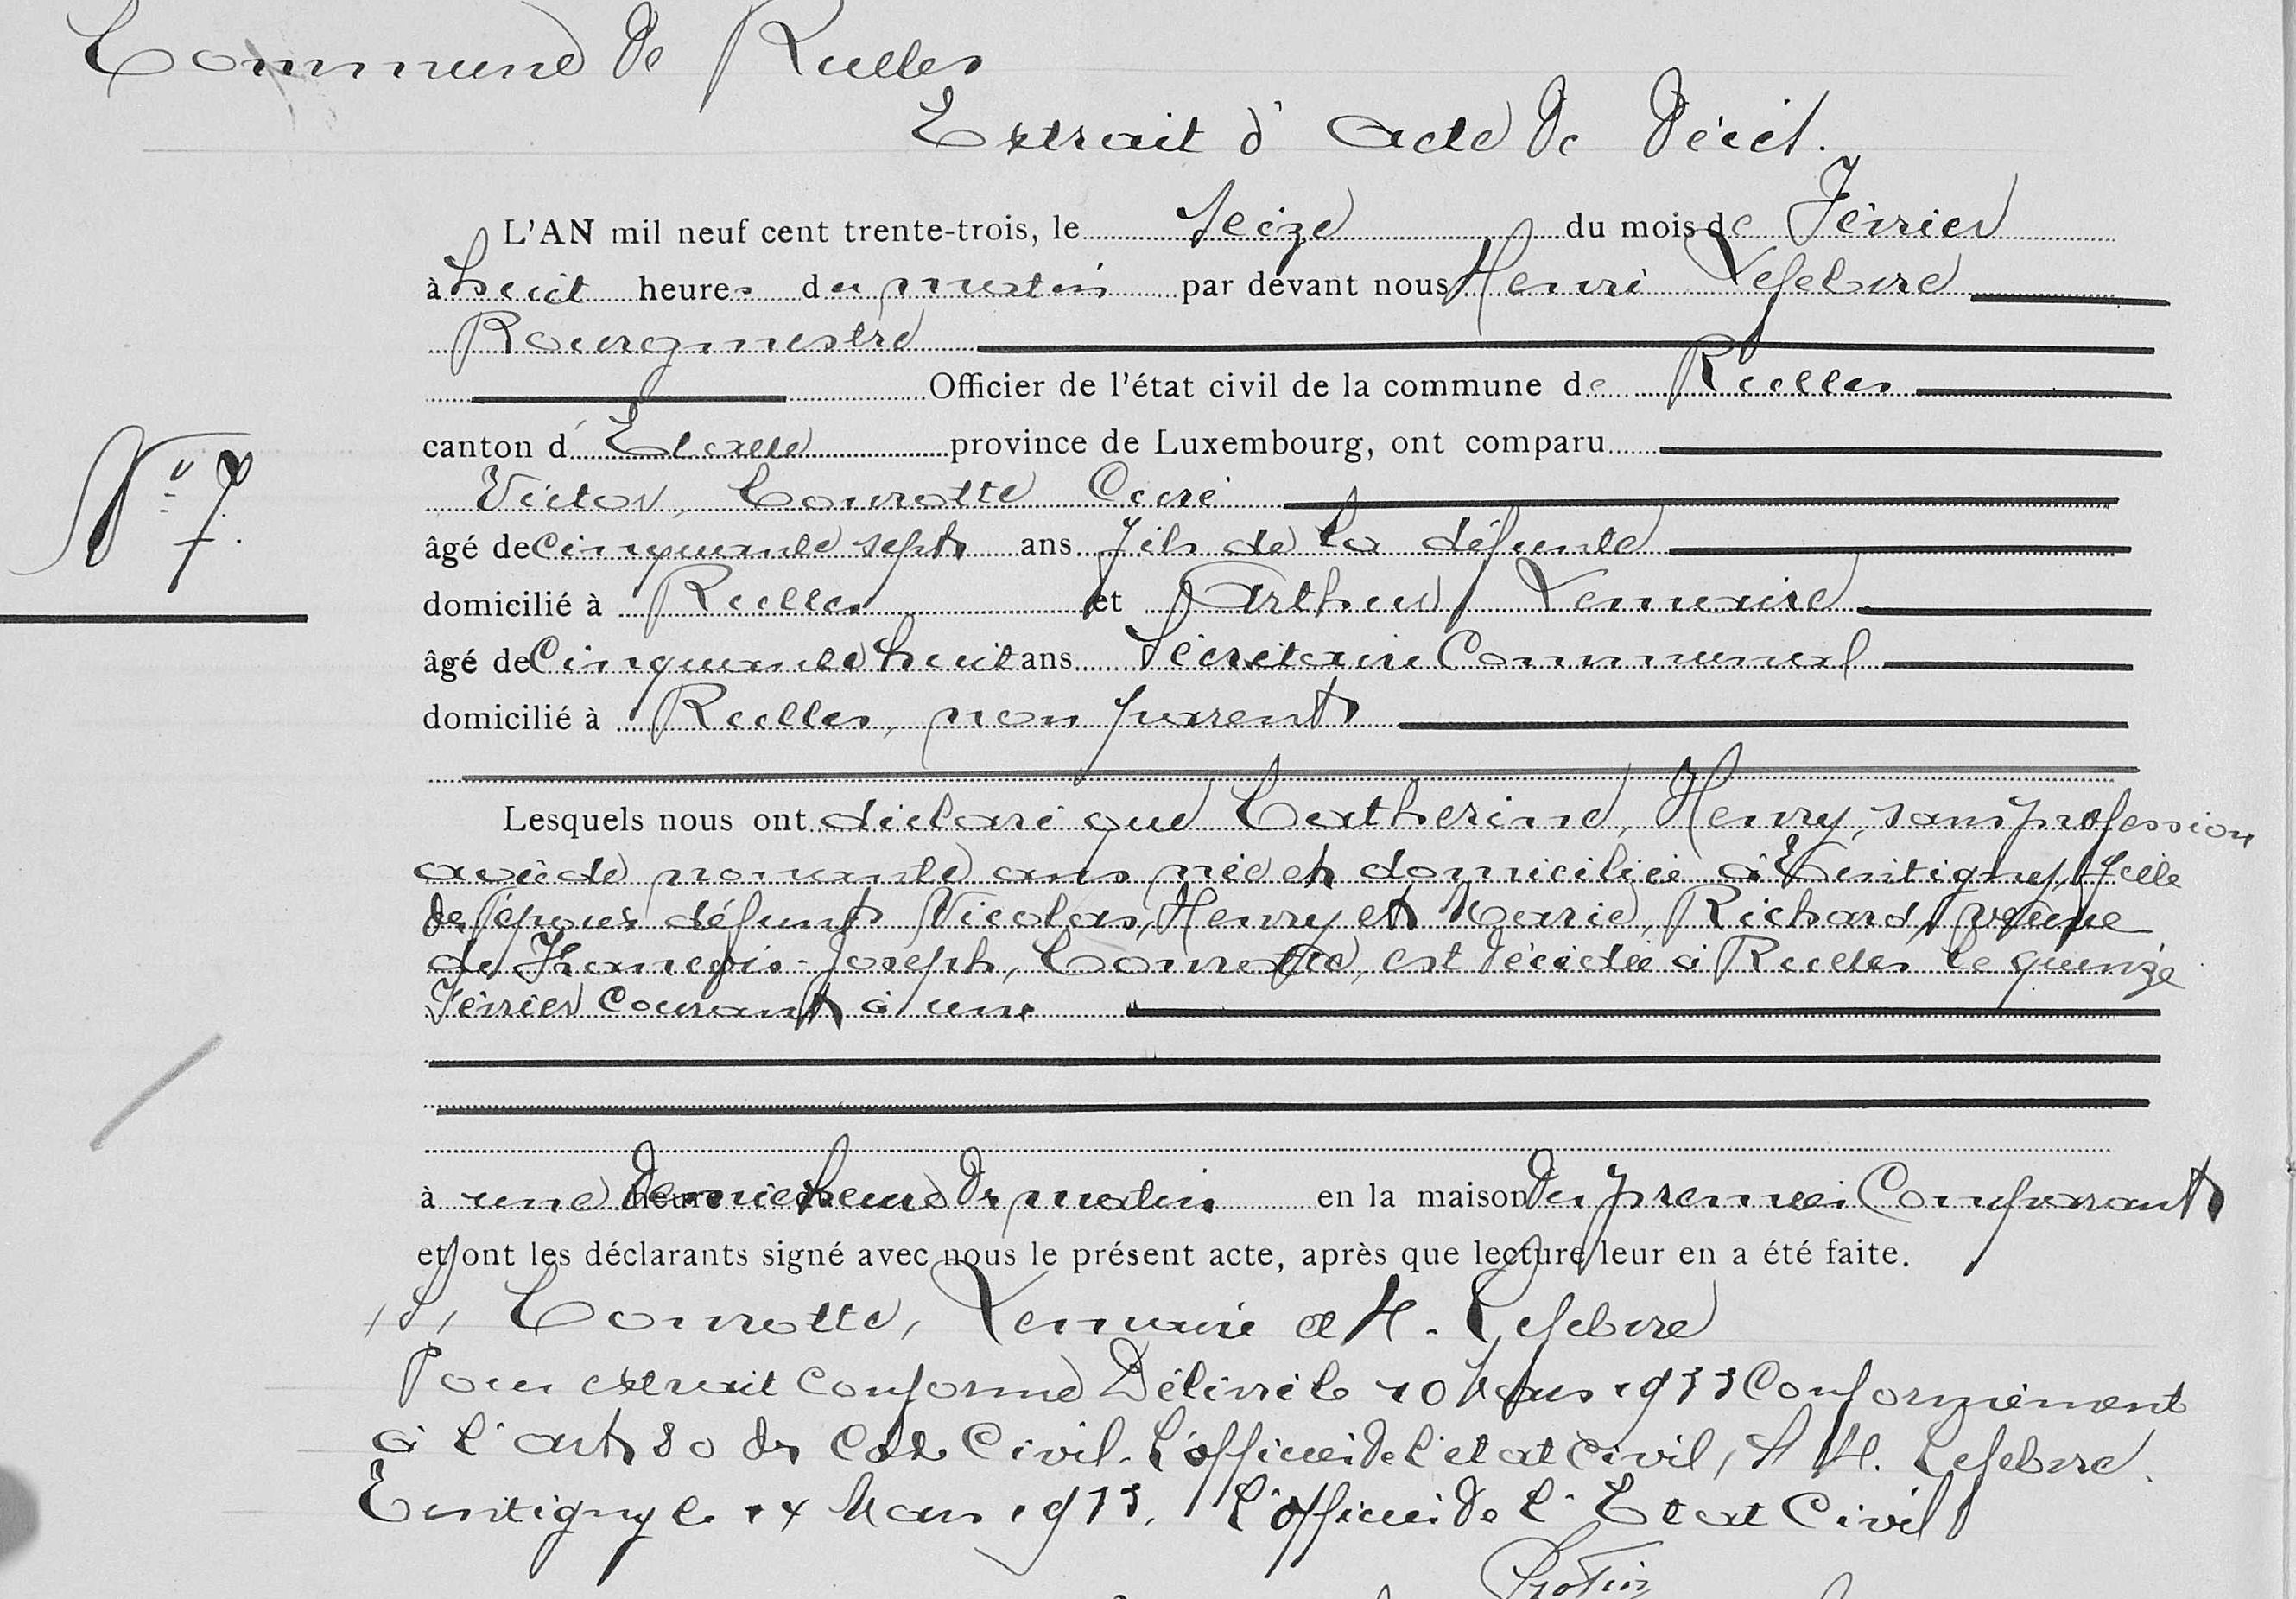 Commune de Rulles
Extrait d'acte de décès.
L'AN mil neuf cent trente-trois, le seize du mois de Février
à huit heures du matin par devant nous Henri Lefebvre
Bourgmestre
Officier de l'état civil de la commune de Rulles
canton d'Etalle province de Luxembourg, ont comparu
N° 7.
Victor, Conrotte Curé
âgé de cinquante sept ans fils de la défunte
domicilié à Rulles et Arthur Lemaire
âgé de cinquante huit ans Secrétaire Communal
domicilié à Rulles, non parent
Lesquels nous ont déclaré que Catherine, Henry, sans profession
agée de nonante ans née et domiciliée à Tintigny, fille
des époux défunts Nicolas, Henry et Marie, Richard, veuve
de François-Joseph, Conrotte, est décédée à Rulles le quinze
Février courant à une
à une demie heure du matin en la maison du premier comparant
et ont les déclarants signé avec nous le présent acte, après que lecture leur en a été faite.
(S) Conrotte, Lemaire et H. Lefebvre
Pour extrait conforme Délivré le 10 Mars 1933 Conformément
à l'art 80 du Code Civil. L'officier de l'état civil, S H. Lefebvre.
Tintigny le 14 Mars 1933. L'officier de l'Etat Civil